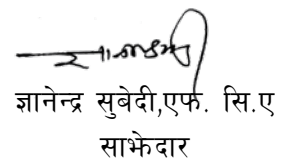 ज्ञानेन्द्र सुबेदी,एफ. सि.ए
साझेदार